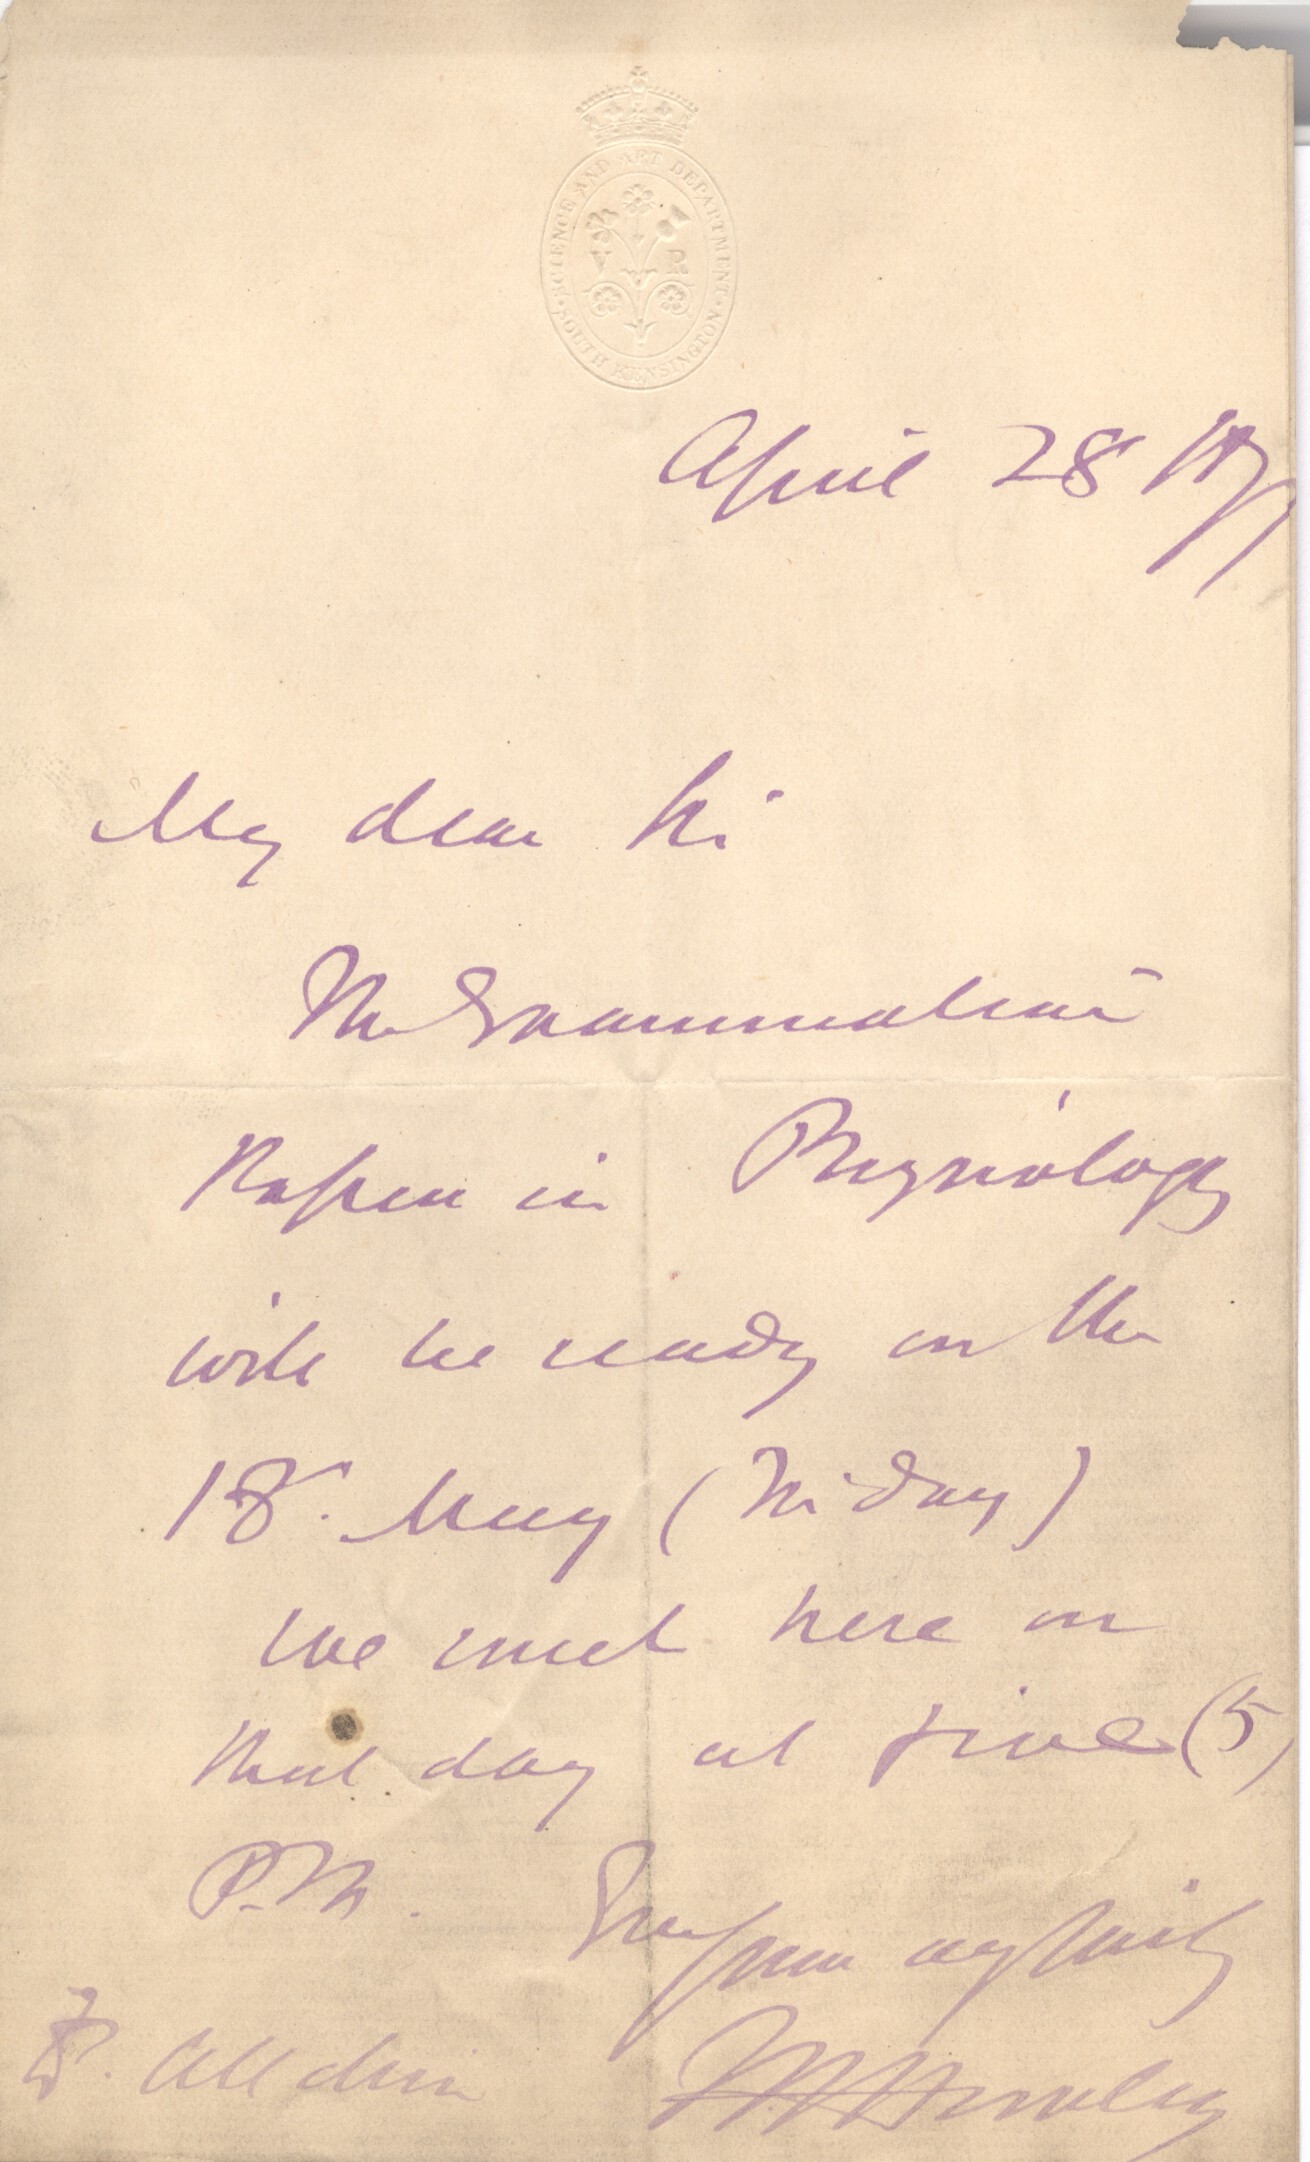 SCIENCE AND ART DEPARTMENT
V R
SOUTH KENSINGTON
April 28 1877
My dear Sir
The Examination
Papers in Physiology
will be ready on the
18th May (Friday)
We meet here on
that day at five (5)
P.M.
yours very faithfully
T H Huxley